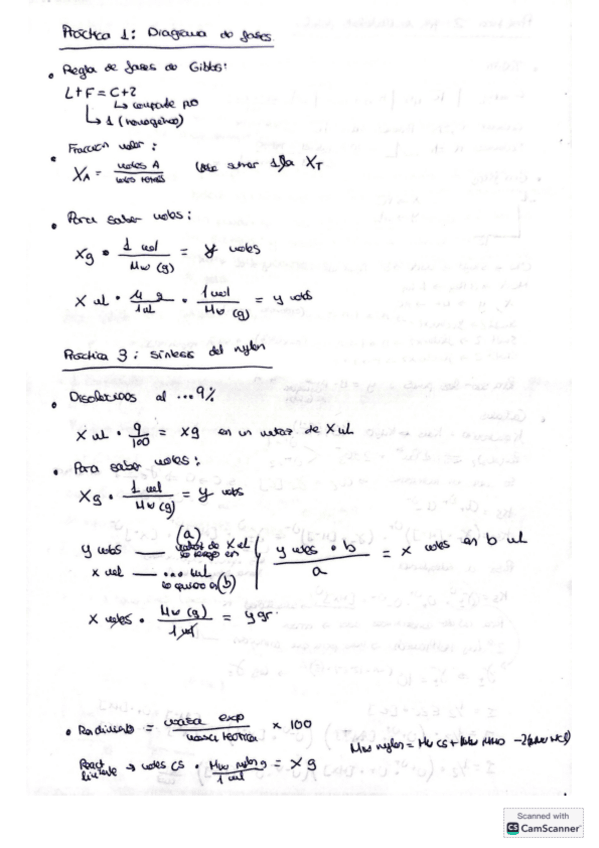 Práctica 1: Diagrama de fases
• Regla de fases de Gibbs:
L+F = C+2
↳ componente
↳ 1 (homogéneo)
• Fracción molar:
X_A = moles A / moles totales     sumar 1 la X_T
• Para saber moles:
Xg • 1 mol / Mw (g) = y moles
X ml • g / 1 ml • 1 mol / Mw (g) = y moles
Práctica 3: síntesis del nylon
• Disoluciones al ...9%
X ml • 9/100 = Xg en un matraz de X ml
• Para saber moles:
Xg • 1 mol / Mw (g) = y moles
y moles — (a) matraz de X ml lo tengo en
x mol — ... ml lo quiero en (b)
y moles • b / a = x moles en b ml
x moles • Mw (g) / 1 mol = y gr
• Rendimiento = masa exp / masa teórica × 100
Mw nylon = Mw CS + Mw HMD - 2(Mw HCl)
React limitante → moles CS • Mw nylon g / 1 mol = X g
Scanned with
CS CamScanner